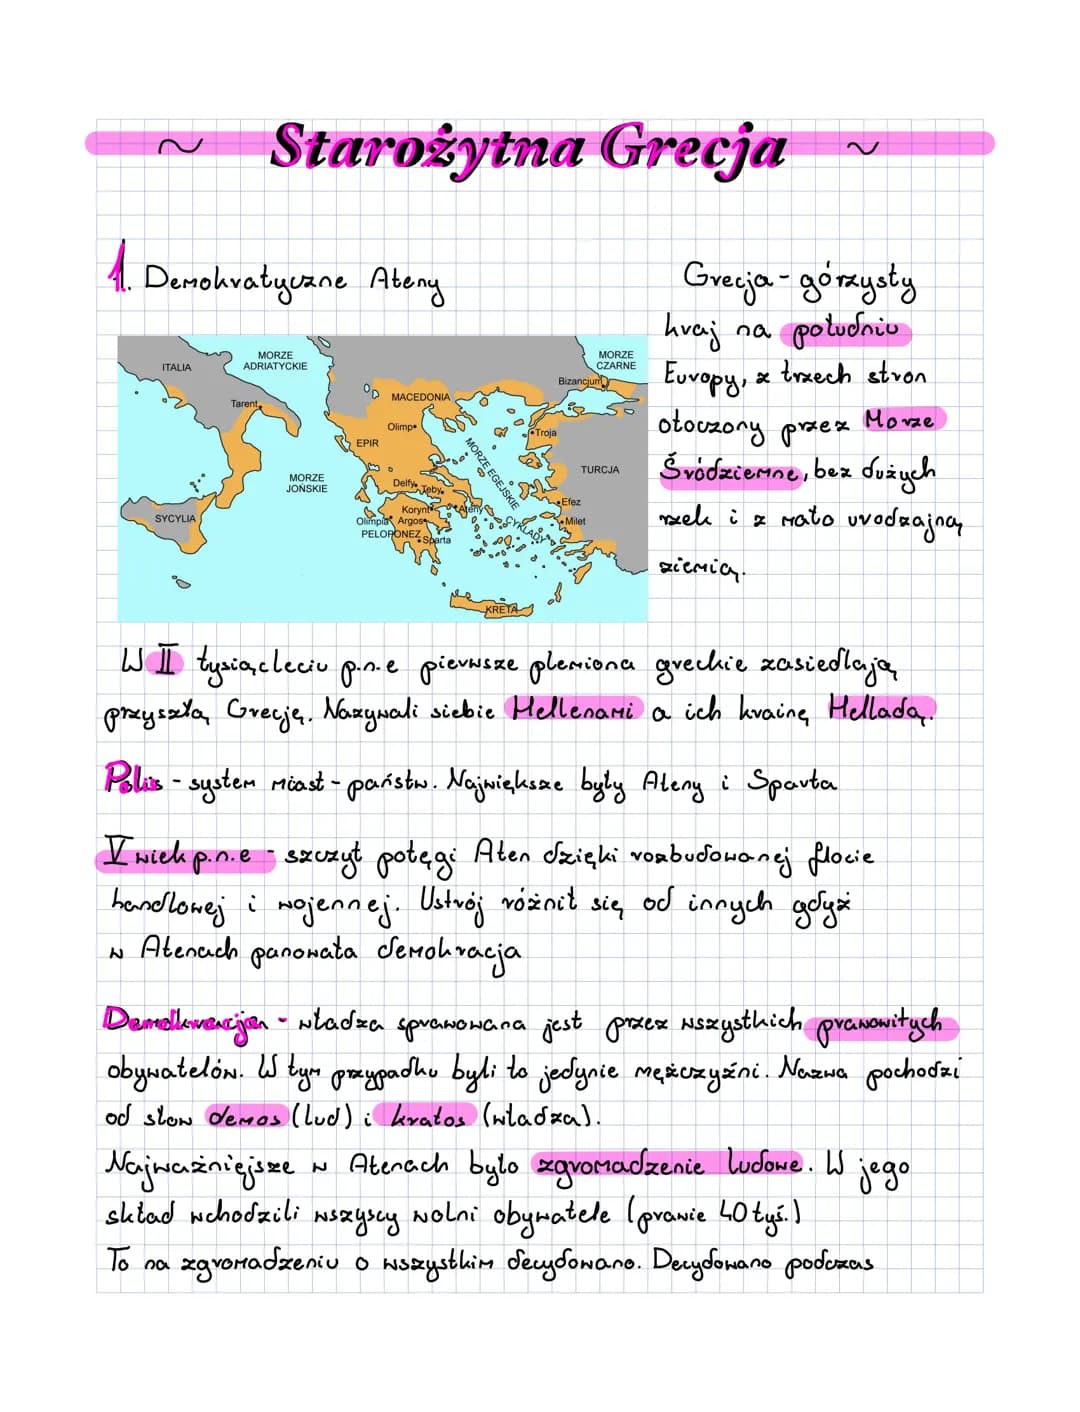 ~ Starożytna Grecja ~
1. Demokratyczne Ateny
Grecja - górzysty
kraj na południu
Europy, z trzech stron
otoczony przez Morze
Śródziemne, bez dużych
rzek i z mało urodzajną
ziemią.
ITALIA
MORZE
ADRIATYCKIE
MORZE
CZARNE
Bizancjum
Tarent
MACEDONIA
Olimp
Troja
EPIR
MORZE EGEJSKIE
MORZE
JOŃSKIE
TURCJA
Delfy
Teby
Efez
SYCYLIA
Korynt
Ateny
Olimpia
Argos
CYKLADY
Milet
PELOPONEZ
Sparta
KRETA
W II tysiącleciu p.n.e pierwsze plemiona greckie zasiedlają
przyszłą Grecję. Nazywali siebie Hellenami a ich krainę Helladą.
Polis - system miast - państw. Największe były Ateny i Sparta
V wiek p.n.e - szczyt potęgi Aten dzięki rozbudowanej flocie
handlowej i wojennej. Ustrój różnił się od innych gdyż
w Atenach panowała demokracja
Demokracja - władza sprawowana jest przez wszystkich prawowitych
obywatelów. W tym przypadku byli to jedynie mężczyźni. Nazwa pochodzi
od słow demos (lud) i kratos (władza).
Najważniejsze w Atenach było zgromadzenie ludowe. W jego
skład wchodzili wszyscy wolni obywatele (prawie 40 tyś.)
To na zgromadzeniu o wszystkim decydowano. Decydowano podczas